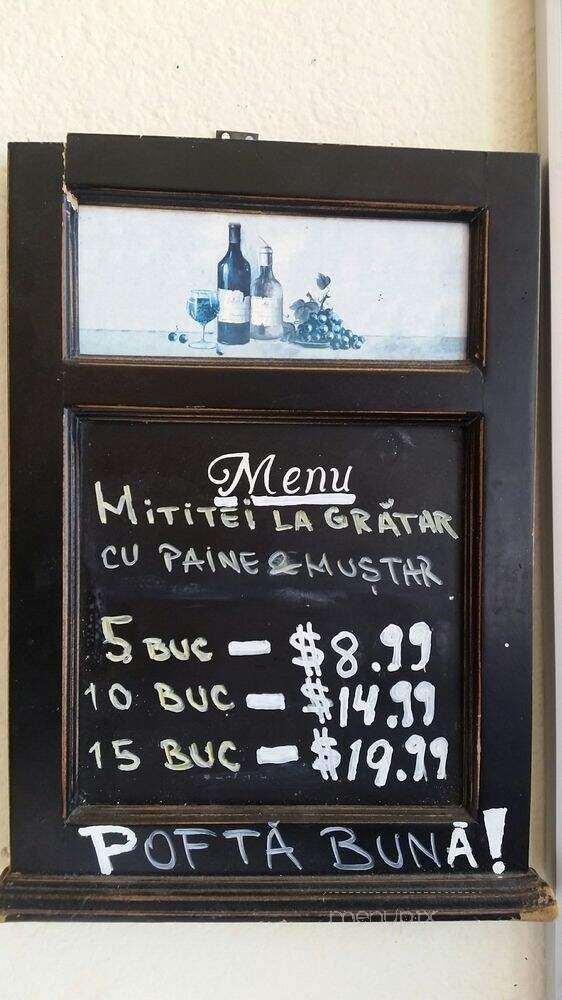 Menu
MiTiTEi LA GRĂTAR
CU PAINE & MUȘTAR
5 BUC - $8.99
10 BUC - $14.99
15 BUC - $19.99
POFTĂ BUNĂ!
menupix